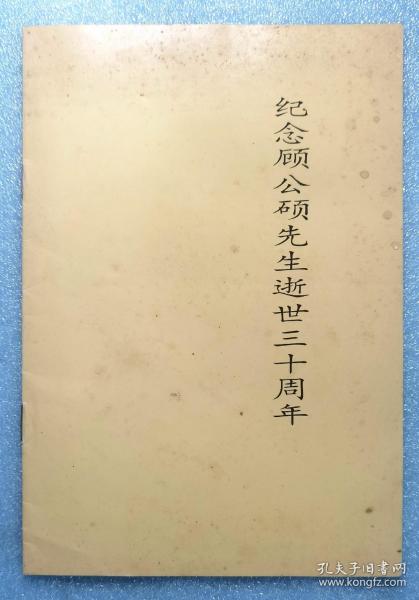 纪念顾公硕先生逝世三十周年
孔夫子旧书网
www.kongfz.com